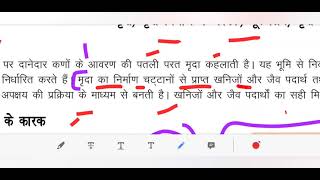 पर दानेदार कणों के आवरण की पतली परत मृदा कहलाती है। यह भूमि से
निर्धारित करते हैं मृदा का निर्माण चट्टानों से प्राप्त खनिजों और जैव पदार्थ
अपक्षय की प्रक्रिया के माध्यम से बनती है। खनिजों और जैव पदार्थों का सही
के कारक